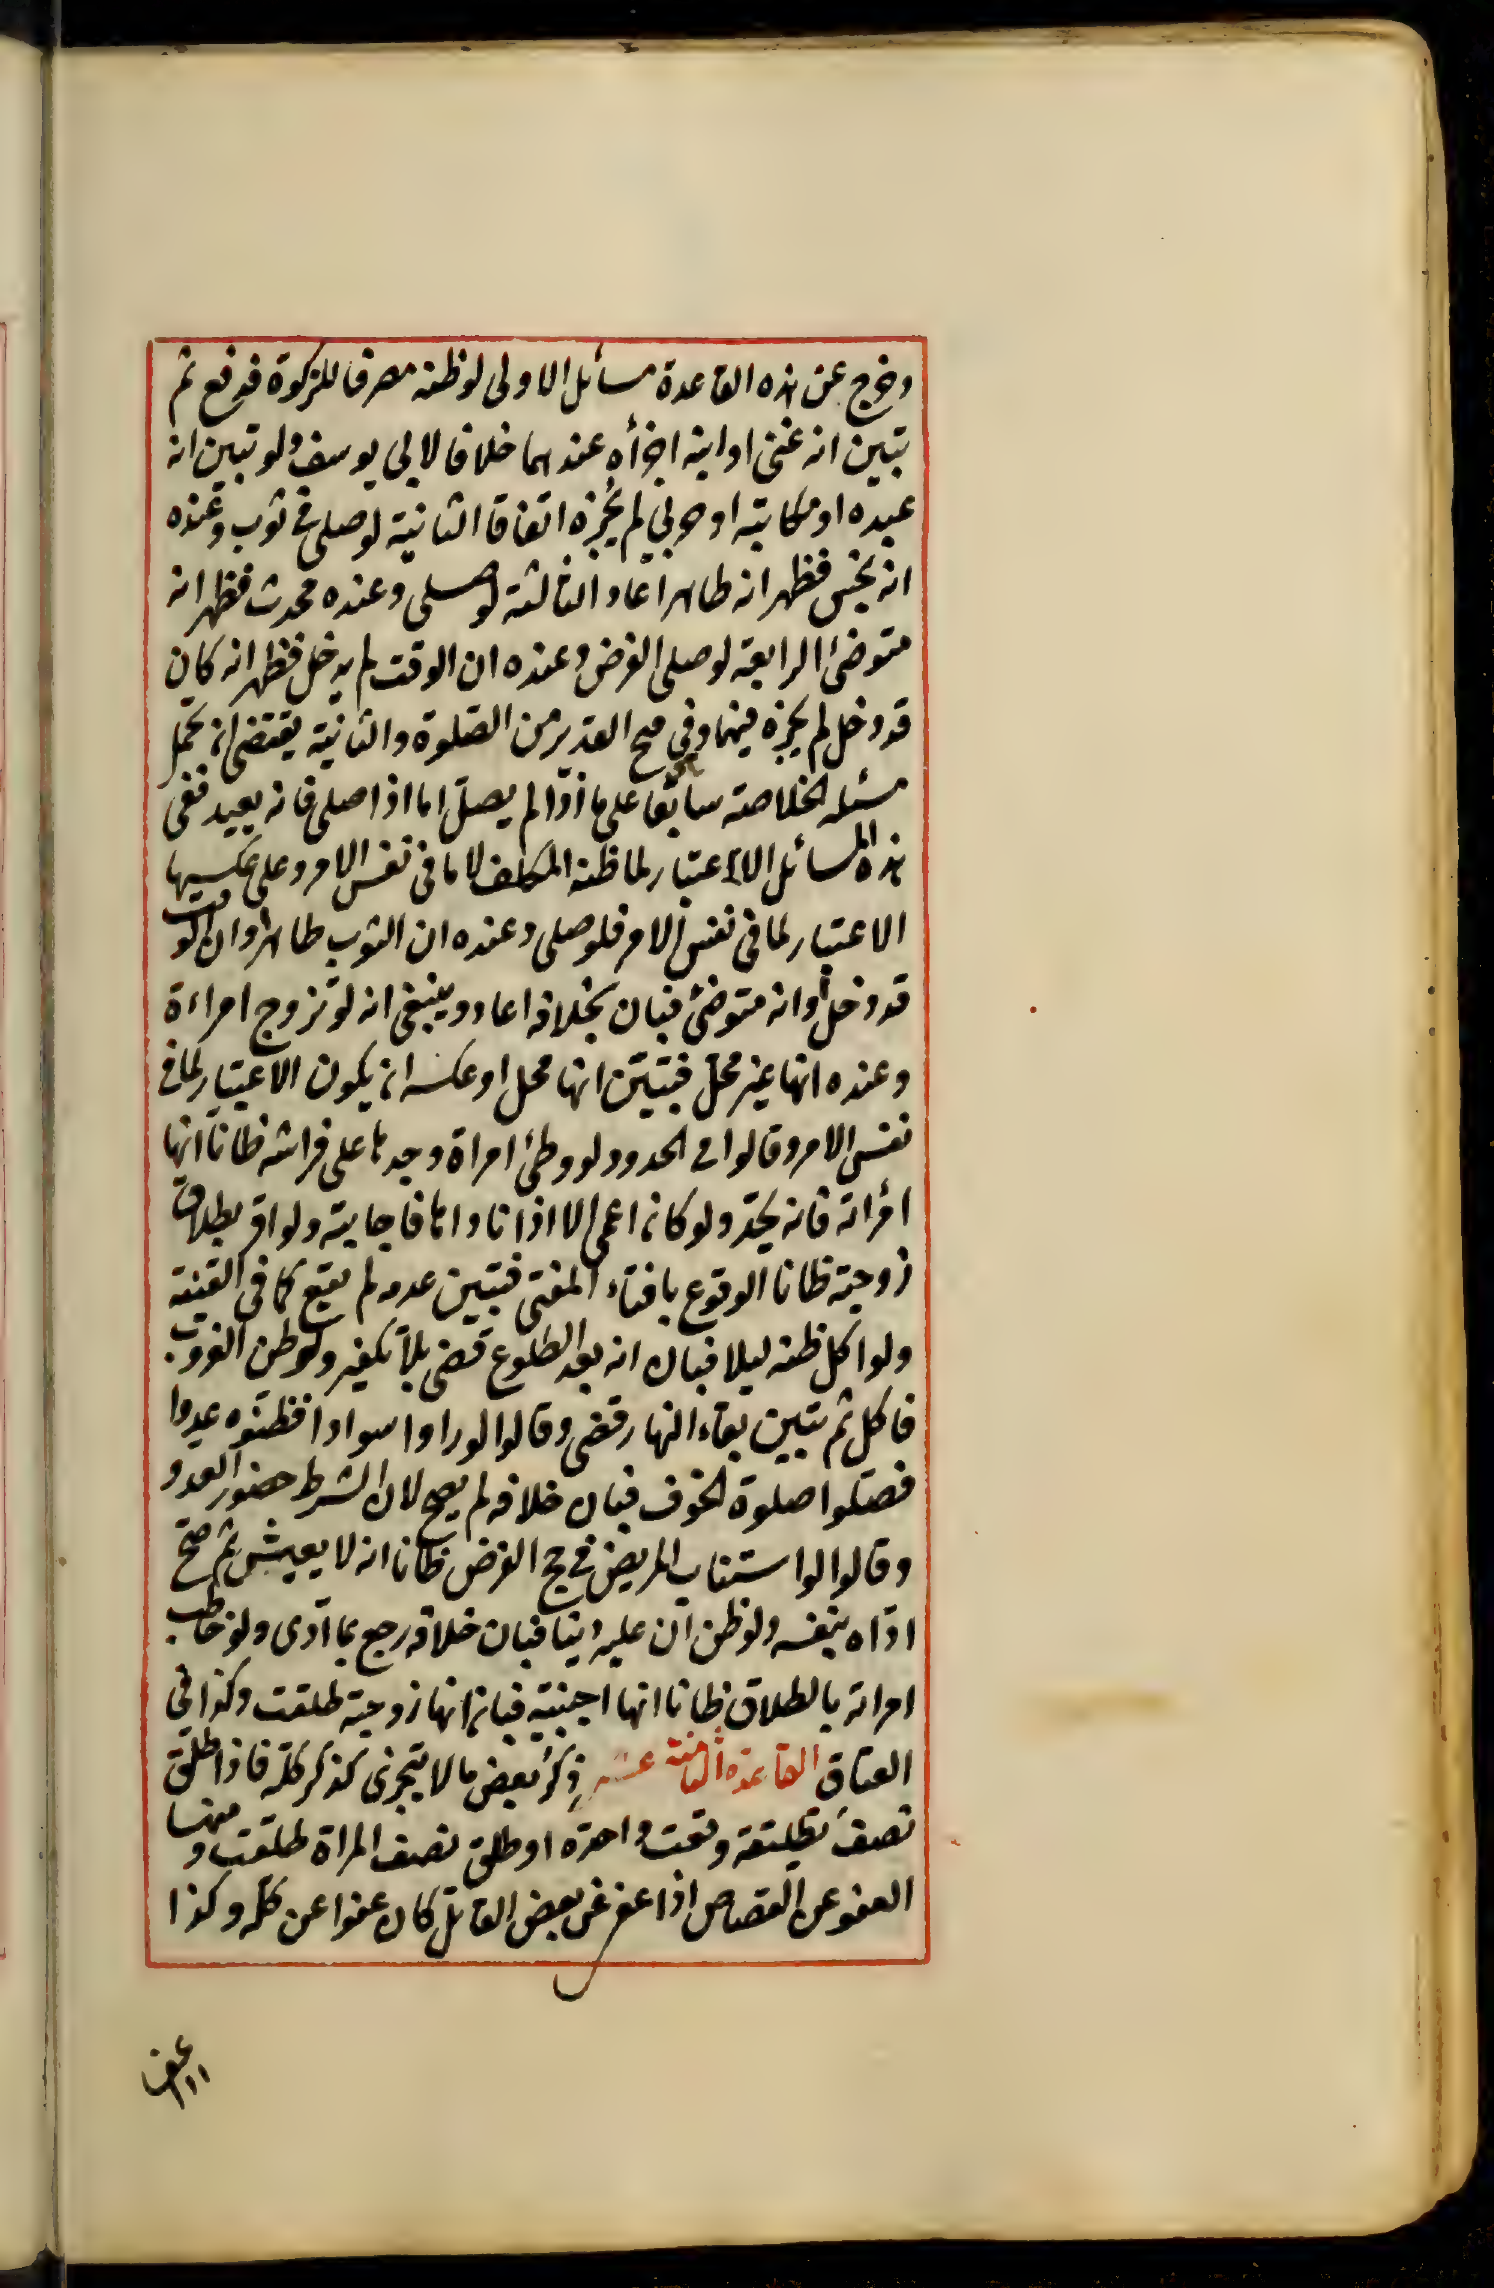 وخرج عن هذه القاعدة مسائل الاولى لو ظنه مصرفا للزكوة فدفع ثم
تبين انه غنى او ابنه اجزأه عندهما خلافا لابي يوسف ولو تبين انه
عبده او مكاتبه او حربي لم يجزه اتفاقا الثانية لو صلى في ثوب وعنده
انه نجس فظهر انه طاهر اعاد الثالثة لو صلى وعنده محدث فظهر انه
متوضئ الرابعة لو صلى الفرض وعنده ان الوقت لم يدخل فظهر انه كان
قد دخل لم يجزه فيهما وفي فتح القدير من الصلوة والثانية يقتضى ان تحمل
مسئلة الخلاصة سابقا على ما اذا لم يصل اما اذا صلى فانه يعيد ففى
هذه المسائل الاعتبار لما ظنه المكلف لا ما فى نفس الامر وعلى عكسها
الاعتبار لما فى نفس الامر فلو صلى وعنده ان الثوب طاهر او ان الوقت
قد دخل او انه متوضئ فبان بخلافه اعاد وينبغى انه لو تزوج امراءة
وعنده انها غير محل فتبين انها محل او عكسه ان يكون الاعتبار لما فى
نفس الامر وقالوا في الحدود لو وطئ امراة وجدها على فراشه ظانا انها
امرأته فانه يحد ولو كان اعمى الا اذا ناداها فاجابته ولو اقر بطلاق
زوجته ظانا الوقوع بافتاء المفتى فتبين عدمه لم يقع كما فى القنية
ولو اكل ظنه ليلا فبان انه بعد الطلوع قضى بلا تكفير ولو ظن الغروب
فاكل ثم تبين بقاء النهار قضى وقالوا لو راوا سوادا فظنوه عدوا
فصلوا صلوة الخوف فبان خلافه لم يصح لان الشرط حضور العدو
وقالوا لو استناب المريض في حج الفرض ظانا انه لا يعيش ثم صح
اداه بنفسه ولو ظن ان عليه دينا فبان خلافه رجع بما ادى ولو خاطب
امراته بالطلاق ظانا انها اجنبية فبان انها زوجته طلقت وكذا فى
العتاق القاعدة الثامنة عشر ذكر بعض ما لا يتجزى كذكر كله فاذا طلق
نصف تطليقة وقعت واحدة او طلق نصف المراة طلقت ومنها
العفو عن القصاص اذا عفى عن بعض القاتل كان عفوا عن كله وكذا